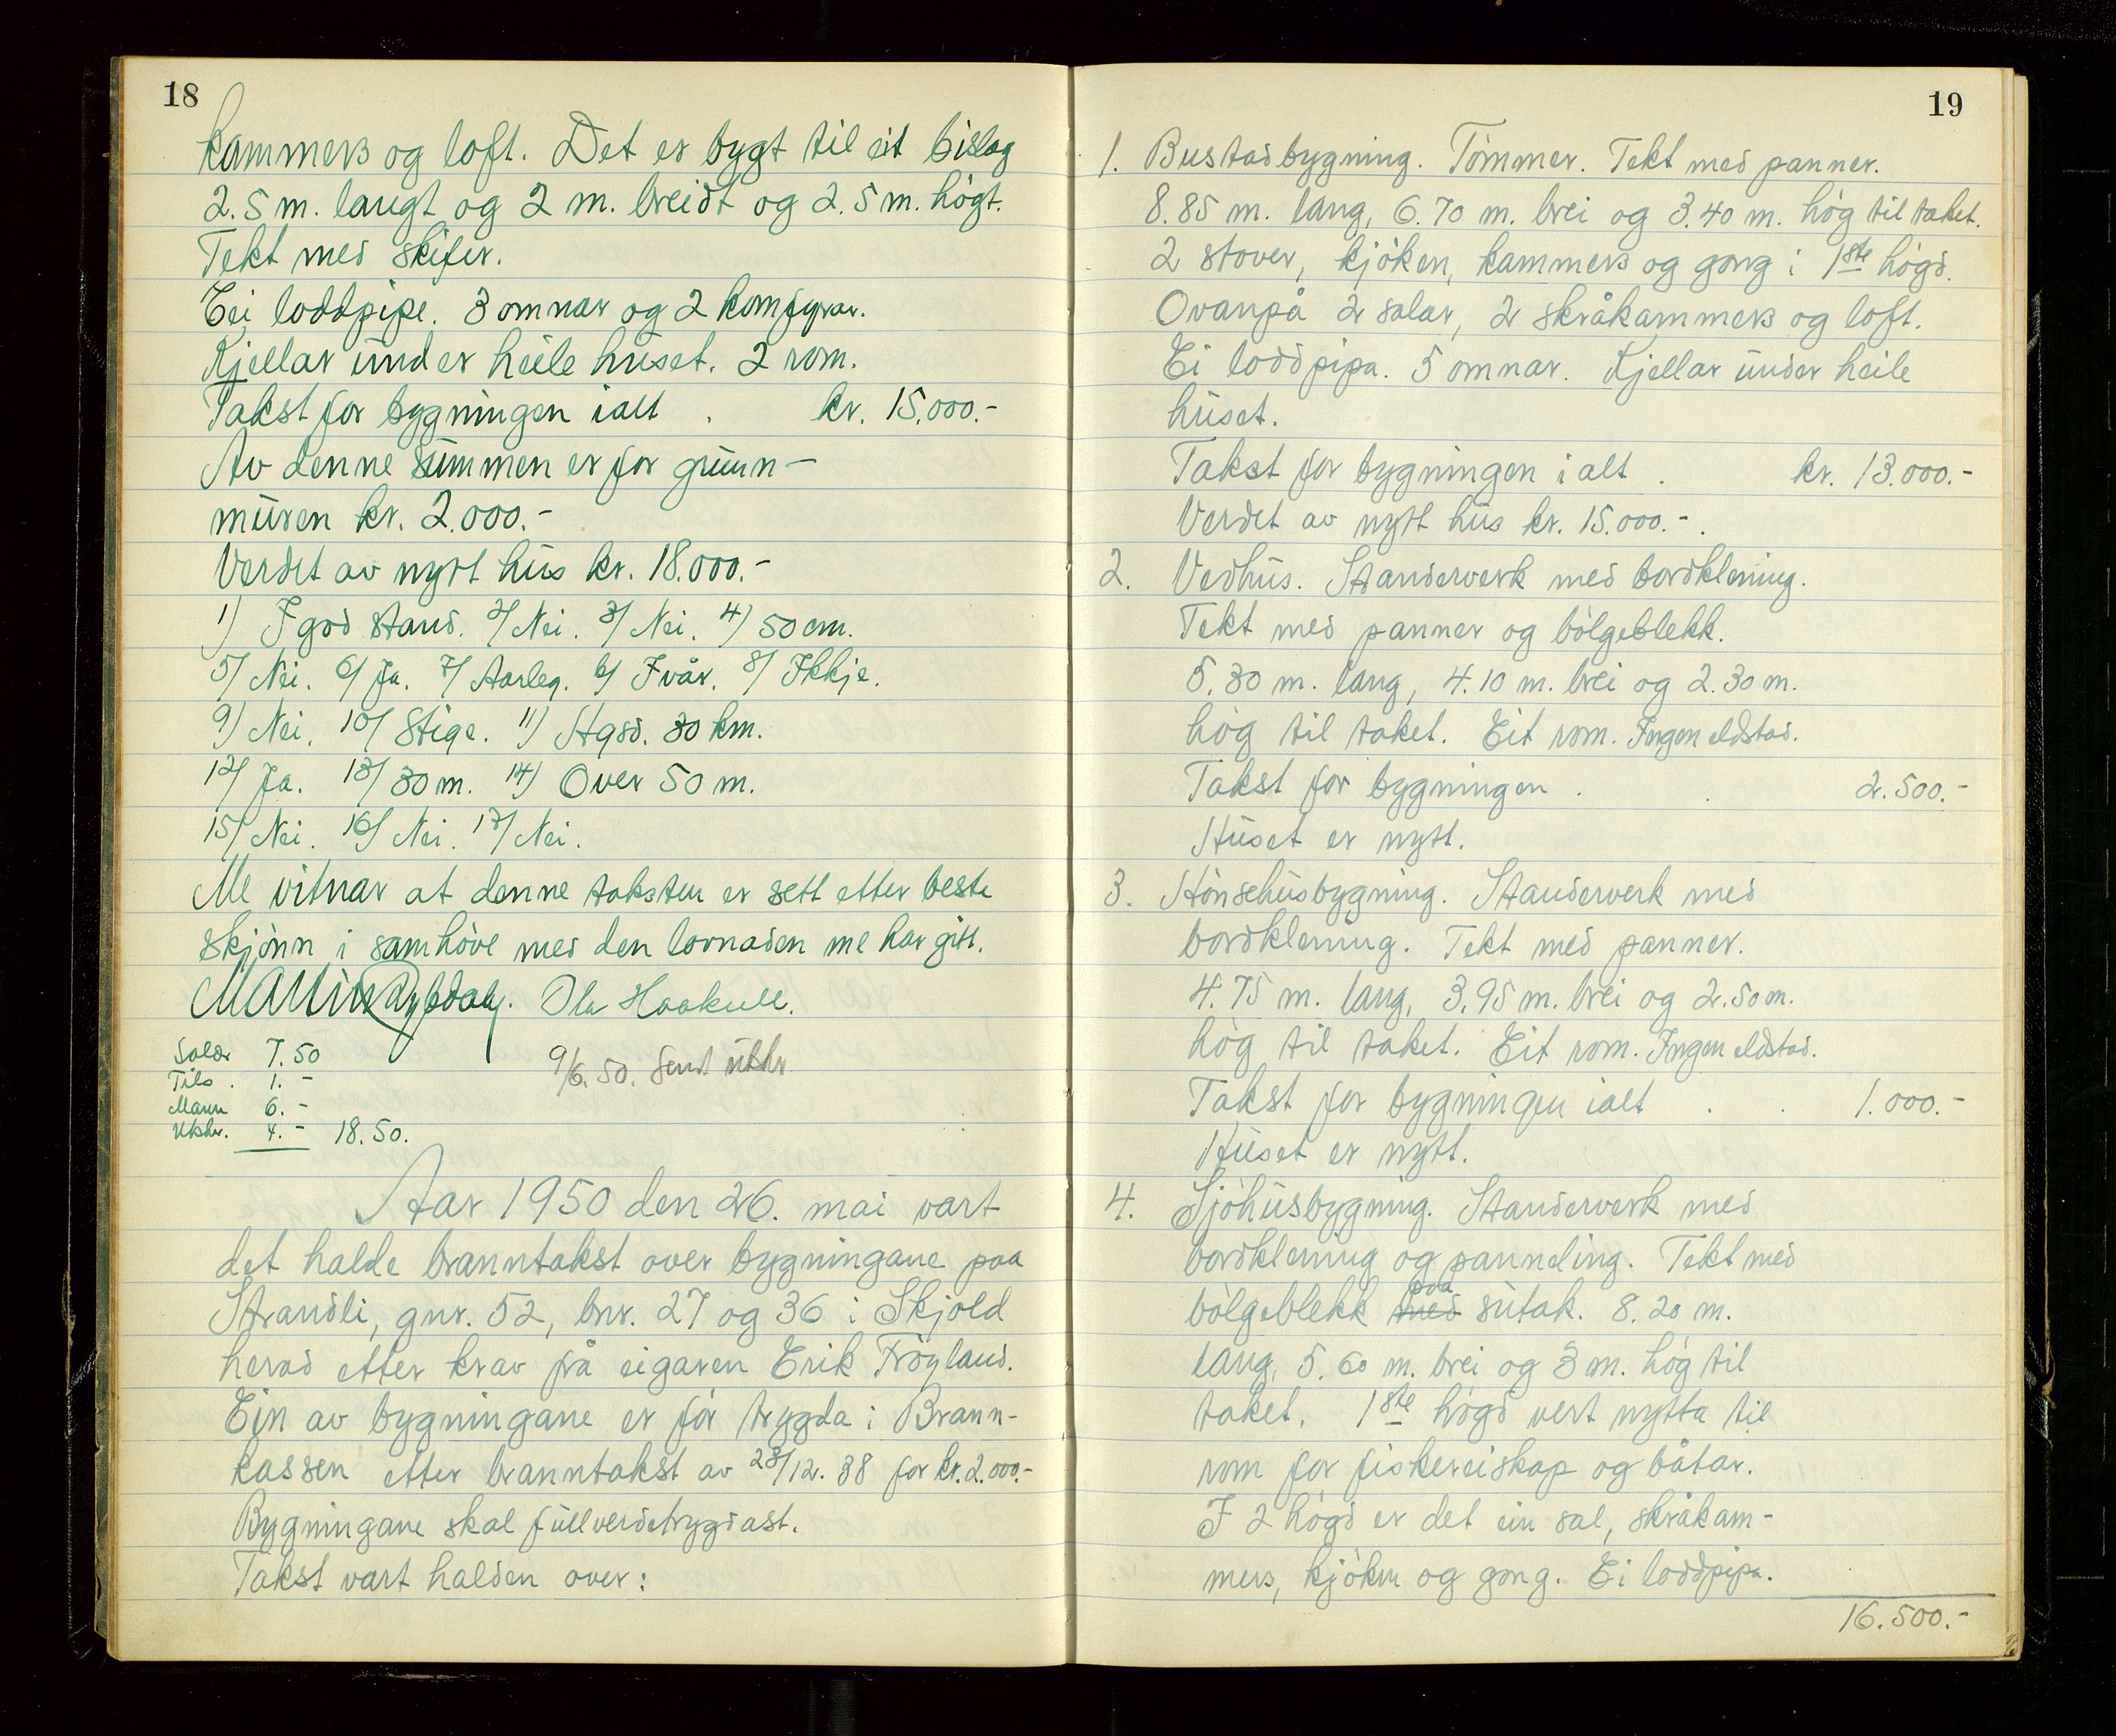 18
kammers og loft. Det er bygt til eit bislag
2.5 m. langt og 2 m. breidt og 2.5 m. högt.
Tekt med skifer.
Ei loddpipe. 3 omnar og 2 komfyrar.
Kjellar under heile huset. 2 rom.
Takst for bygningen ialt . kr. 15.000.-
Av denne summen er for gruun-
muren kr. 2.000.-
Verdet av nytt hus kr. 18.000.-
1) I god stand. 2/ Nei. 3/ Nei. 4) 50 cm.
5/ Nei. 6/ Ja. 7/ Aarleg. b/ I vår. 8/ Ikkje.
9) Nei. 10/ Stige. 11) Hgsd. 30 km.
12/ Ja. 13/ 30 m. 14) Over 50 m.
15/ Nei. 16/ Nei. 17/ Nei.
Me vitnar at denne taksten er sett etter beste
skjönn i samhöve med den lovnaden me har gitt.
Martin Ola Haakull.
9/6. 50. Sendt utskr.
Takst 7.50
Tils. 1.-
Mann 6.-
Utskr. 4.- 18.50.
Aar 1950 den 26. mai vart
det halde branntakst over bygningane paa
Strandli, gnr. 52, bnr. 27 og 36 i Skjold
herad etter krav frå eigaren Erik Fröyland.
Ein av bygningane er för trygda i Brann-
kassen etter branntakst av 28/12. 38 for kr. 2.000.-
Bygningane skal fullverdetrygdast.
Takst vart halden over:
19
1. Bustadbygning. Tömmer. Tekt med panner.
8.85 m. lang, 6.70 m. brei og 3.40 m. hög til taket.
2 stover, kjöken, kammers og gong i 1ste högd.
Ovanpå 2 salar, 2 skråkammers og loft.
Ei loddpipa. 5 omnar. Kjellar under heile
huset.
Takst for bygningen i alt . kr. 13.000.-
Verdet av nytt hus kr. 15.000.-.
2. Vedhus. Standerverk med bordkledning.
Tekt med panner og bölgeblekk.
5.30 m. lang, 4.10 m. brei og 2.30 m.
hög til taket. Eit rom. Ingen eldstad.
Takst for bygningen . . 2.500.-
Huset er nytt.
3. Hönsehusbygning. Standerverk med
bordkledning. Tekt med panner.
4.75 m. lang, 3.95 m. brei og 2.50 m.
hög til taket. Eit rom. Ingen eldstad.
Takst for bygningen ialt . . 1.000.-
Huset er nytt.
4. Sjöhusbygning. Standerverk med
bordkledning og panneling. Tekt med
bölgeblekk med paa sutak. 8.20 m.
lang, 5.60 m. brei og 3 m. hög til
taket. 1ste högd vert nytta til
rom for fiskereiskap og båtar.
I 2 högd er det ein sal, skråkam-
mers, kjöken og gong. Ei loddpipa.
16.500.-